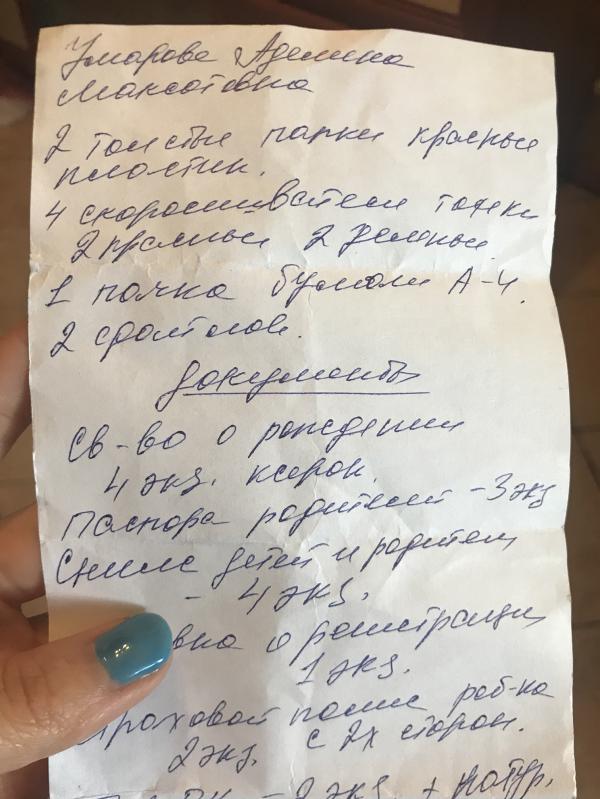 Умарова Аделина
Максатовна
2 толстые папки красные
пластик.
4 скоросшивателя тонки
2 красные 2 зеленые
1 пачка бумаги А-4.
2
Документы
Св-во о рождении
4 экз. ксерок.
Паспорта родителей - 3 экз
Снилс детей и родител
- 4 экз.
вка о регистрации
1 экз.
траховой полис реб-ка
2 экз. с 2х сторон.
- 2 экз + натур.